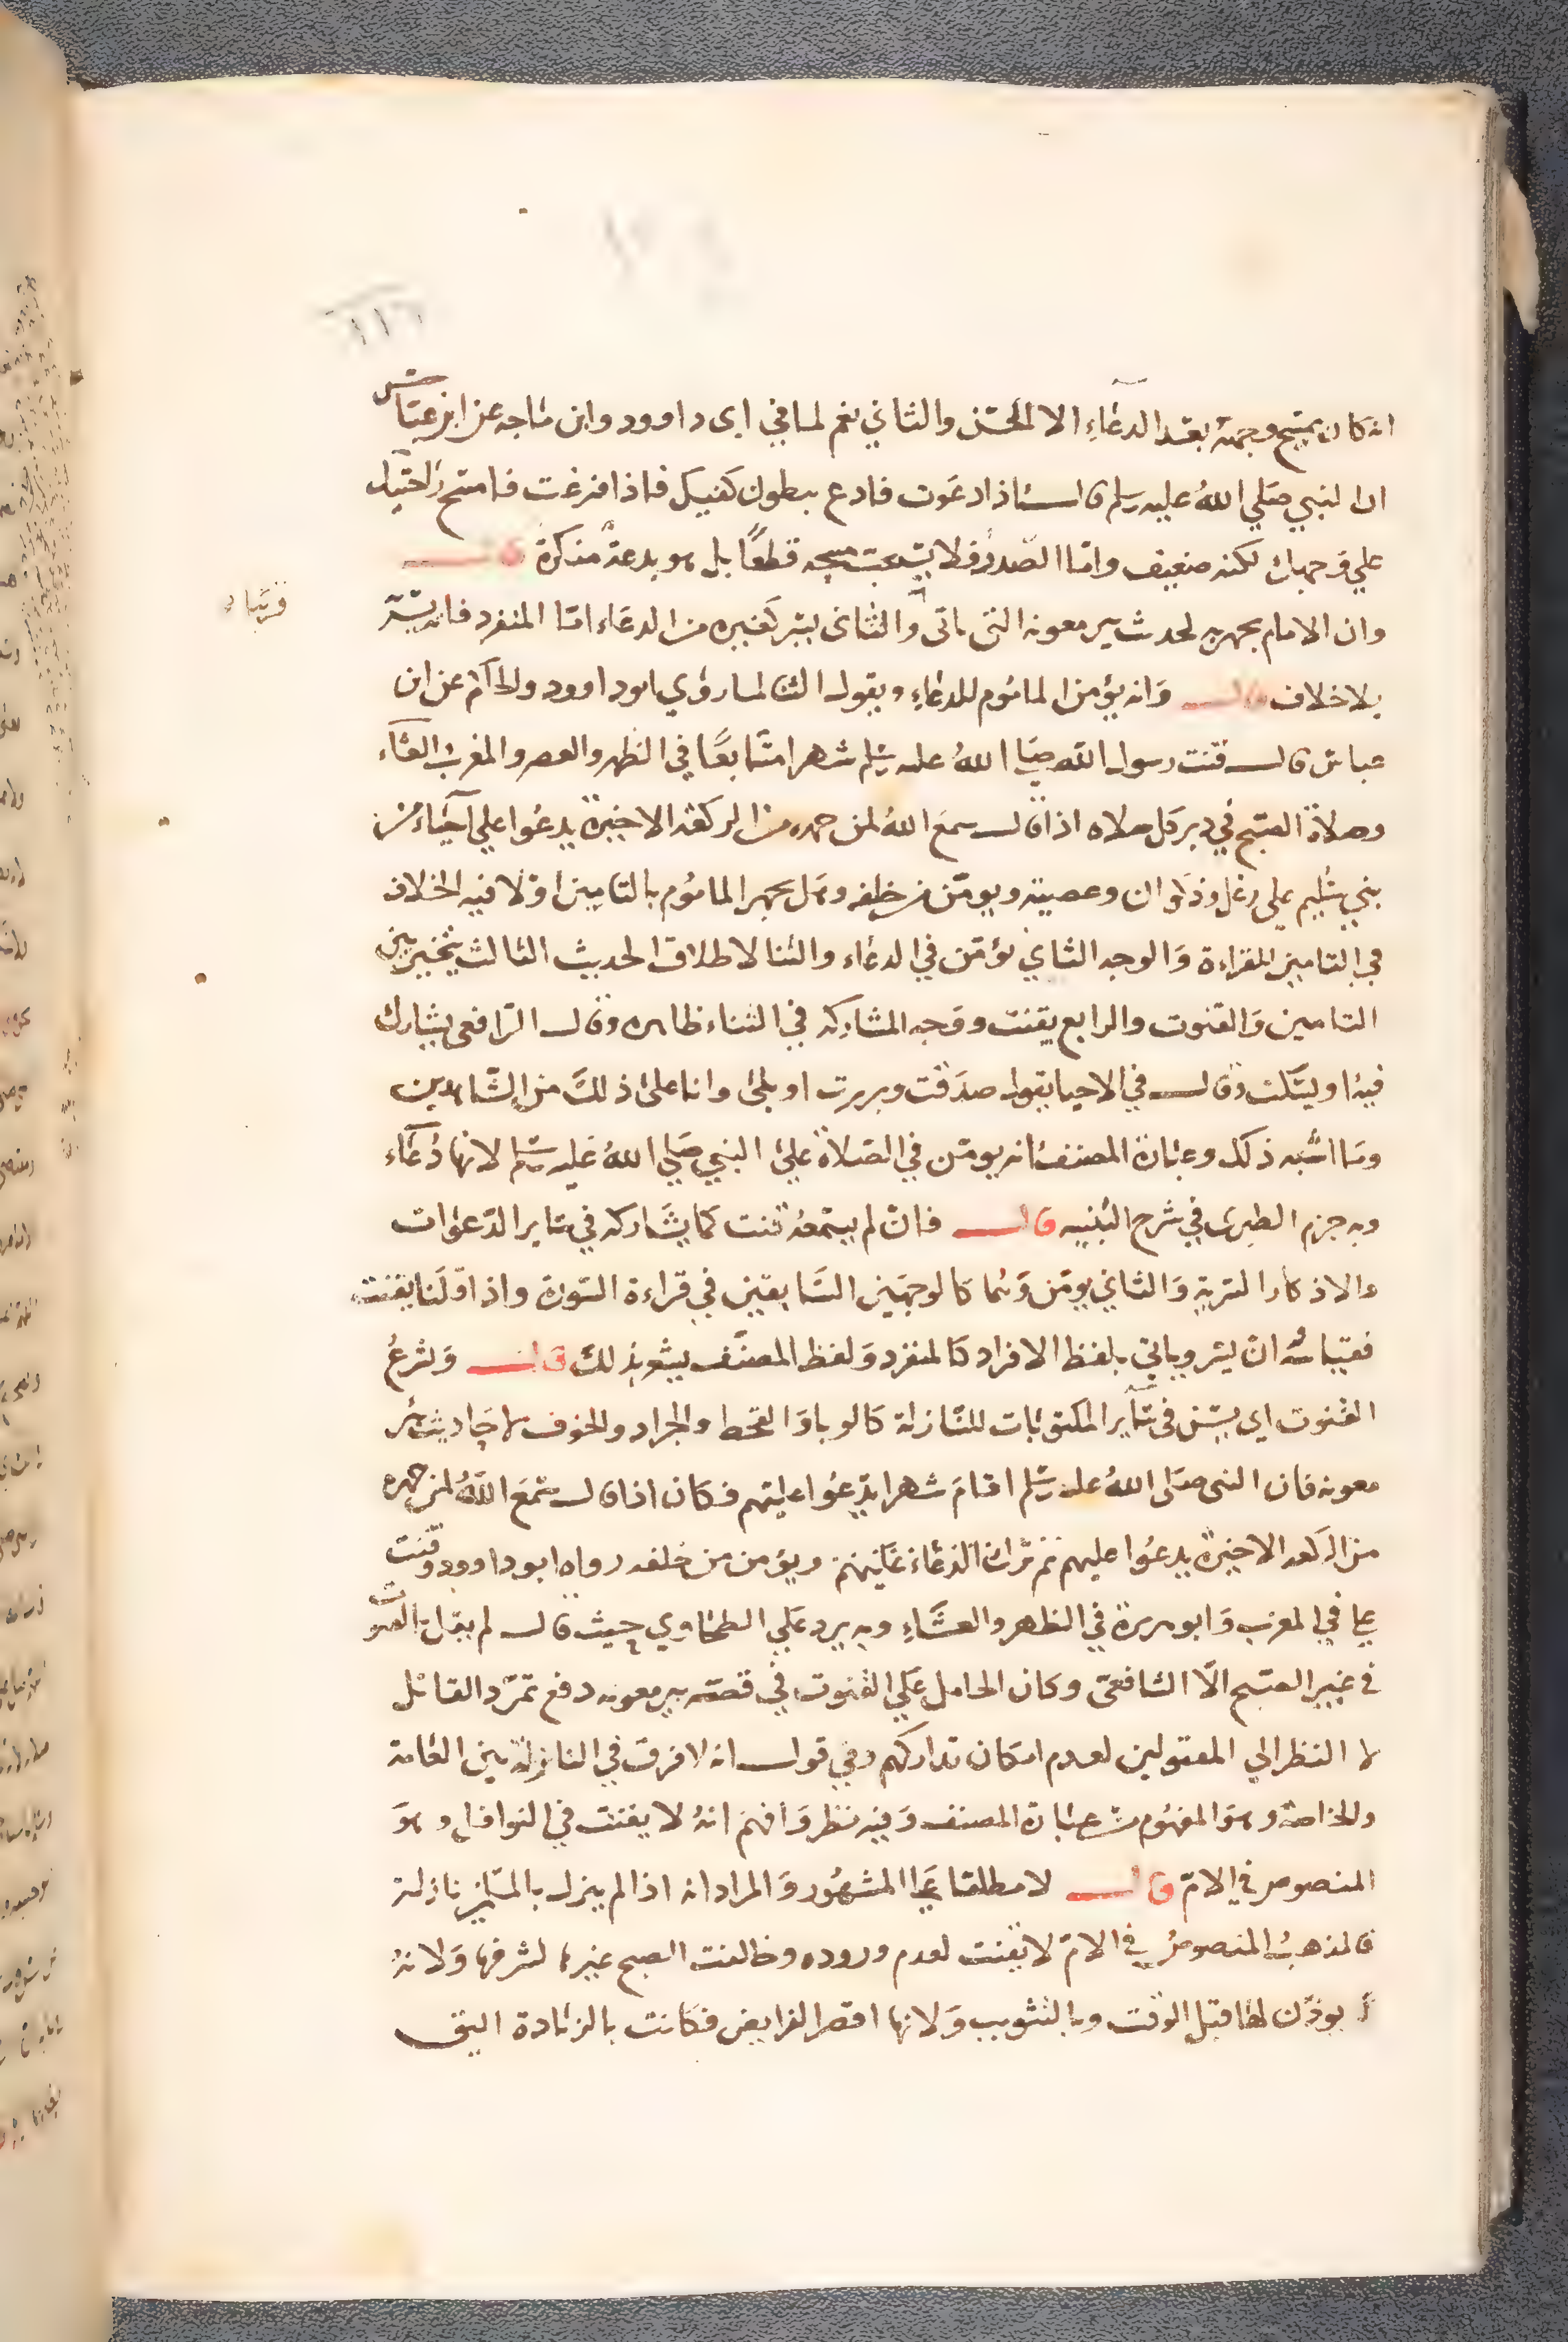 ١١٦
انه كان يمسح وجهه بعد الدعاء الا المحسن والثاني نعم لما في ابي داوود وابن ماجه عن ابن عباس
ان النبي صلي الله عليه وسلم قال اذا دعوت فادع ببطون كفيك فاذا فرغت فامسح راحتيك
علي وجهك لكنه ضعيف واما الصدر فلا يستحب مسحه قطعا بل هو بدعة منكرة قال
وان الامام يجهر به لحديث بير معونه التي ياتي والثاني يسر كغيره من الدعاء اما المنفرد فانه يسر
بلا خلاف قال وانه يؤمن الماموم للدعاء ويقول الثنا لما روي ابو داوود والحاكم عن ابن
عباس قال قنت رسول الله صلي الله عليه وسلم شهرا متتابعا في الظهر والعصر والمغرب والعشاء
وصلاة الصبح في دبر كل صلاه اذا قال سمع الله لمن حمده من الركعة الاخيرة يدعوا علي احياء من
بني سليم علي رعل وذكوان وعصية ويومن من خلفه وهل يجهر الماموم بالتامين او لا فيه الخلاف
في التامين للقراءة والوجه الثاني يؤمن في الدعاء والثنا لاطلاق الحديث الثالث يتخير بين
التامين والقنوت والرابع يقنت ووجه المشاركه في الثناء ظاهره وقال الرافعي يشارك
فيه او يسكت وقال في الاحيا يقول صدقت وبررت او بلى وانا على ذلك من الشاهدين
وما اشبه ذلك وعبارة المصنف انه يومن في الصلاة علي النبي صلي الله عليه وسلم لانها دعاء
وبه جزم الطبرى في شرح التنبيه قال فان لم يسمعه قنت كما يشاركه في ساير الدعوات
والاذكار السرية والثاني يومن وهما كالوجهين السابقين في قراءة السورة واذا قلنا يقنت
فقياسه ان يسر وياتي بلفظ الافراد كالمنفرد ولفظ المصنف يشعر بذلك قال ويشرع
القنوت اي يسن في ساير المكتوبات للنازلة كالوبا والقحط والجراد والخوف لاحاديث بئر
معونه فان النبي صلى الله عليه وسلم اقام شهرا يدعوا عليهم فكان اذا قال سمع الله لمن حمده
من الركعه الاخيرة يدعوا عليهم ثم ترك الدعاء عليهم ويؤمن من خلفه رواه ابو داوود وقنت
علي في المغرب وابو هريرة في الظهر والعشاء وبه يرد علي الطحاوي حيث قال لم يقل بالقنوت
في غير الصبح الا الشافعي وكان الحامل علي القنوت في قصة بير معونه دفع تمرد القاتل
لا النظر الي المقتولين لعدم امكان تداركهم وفي قول انه لا فرق في النازلة بين العامة
والخاصة وهو المفهوم من عبارة المصنف وفيه نظر وافهم انه لا يقنت في النوافل وهو
المنصوص في الام قال لا مطلقا علي المشهور والمراد انه اذا لم ينزل بالمسلمين نازلة
فالمذهب المنصوص في الام لا يقنت لعدم وروده وخالفت الصبح غيرها لشرفها ولانه
يوذن لها قبل الوقت وبالتثويب ولانها اقصر الفرايض فكانت بالزيادة اليق